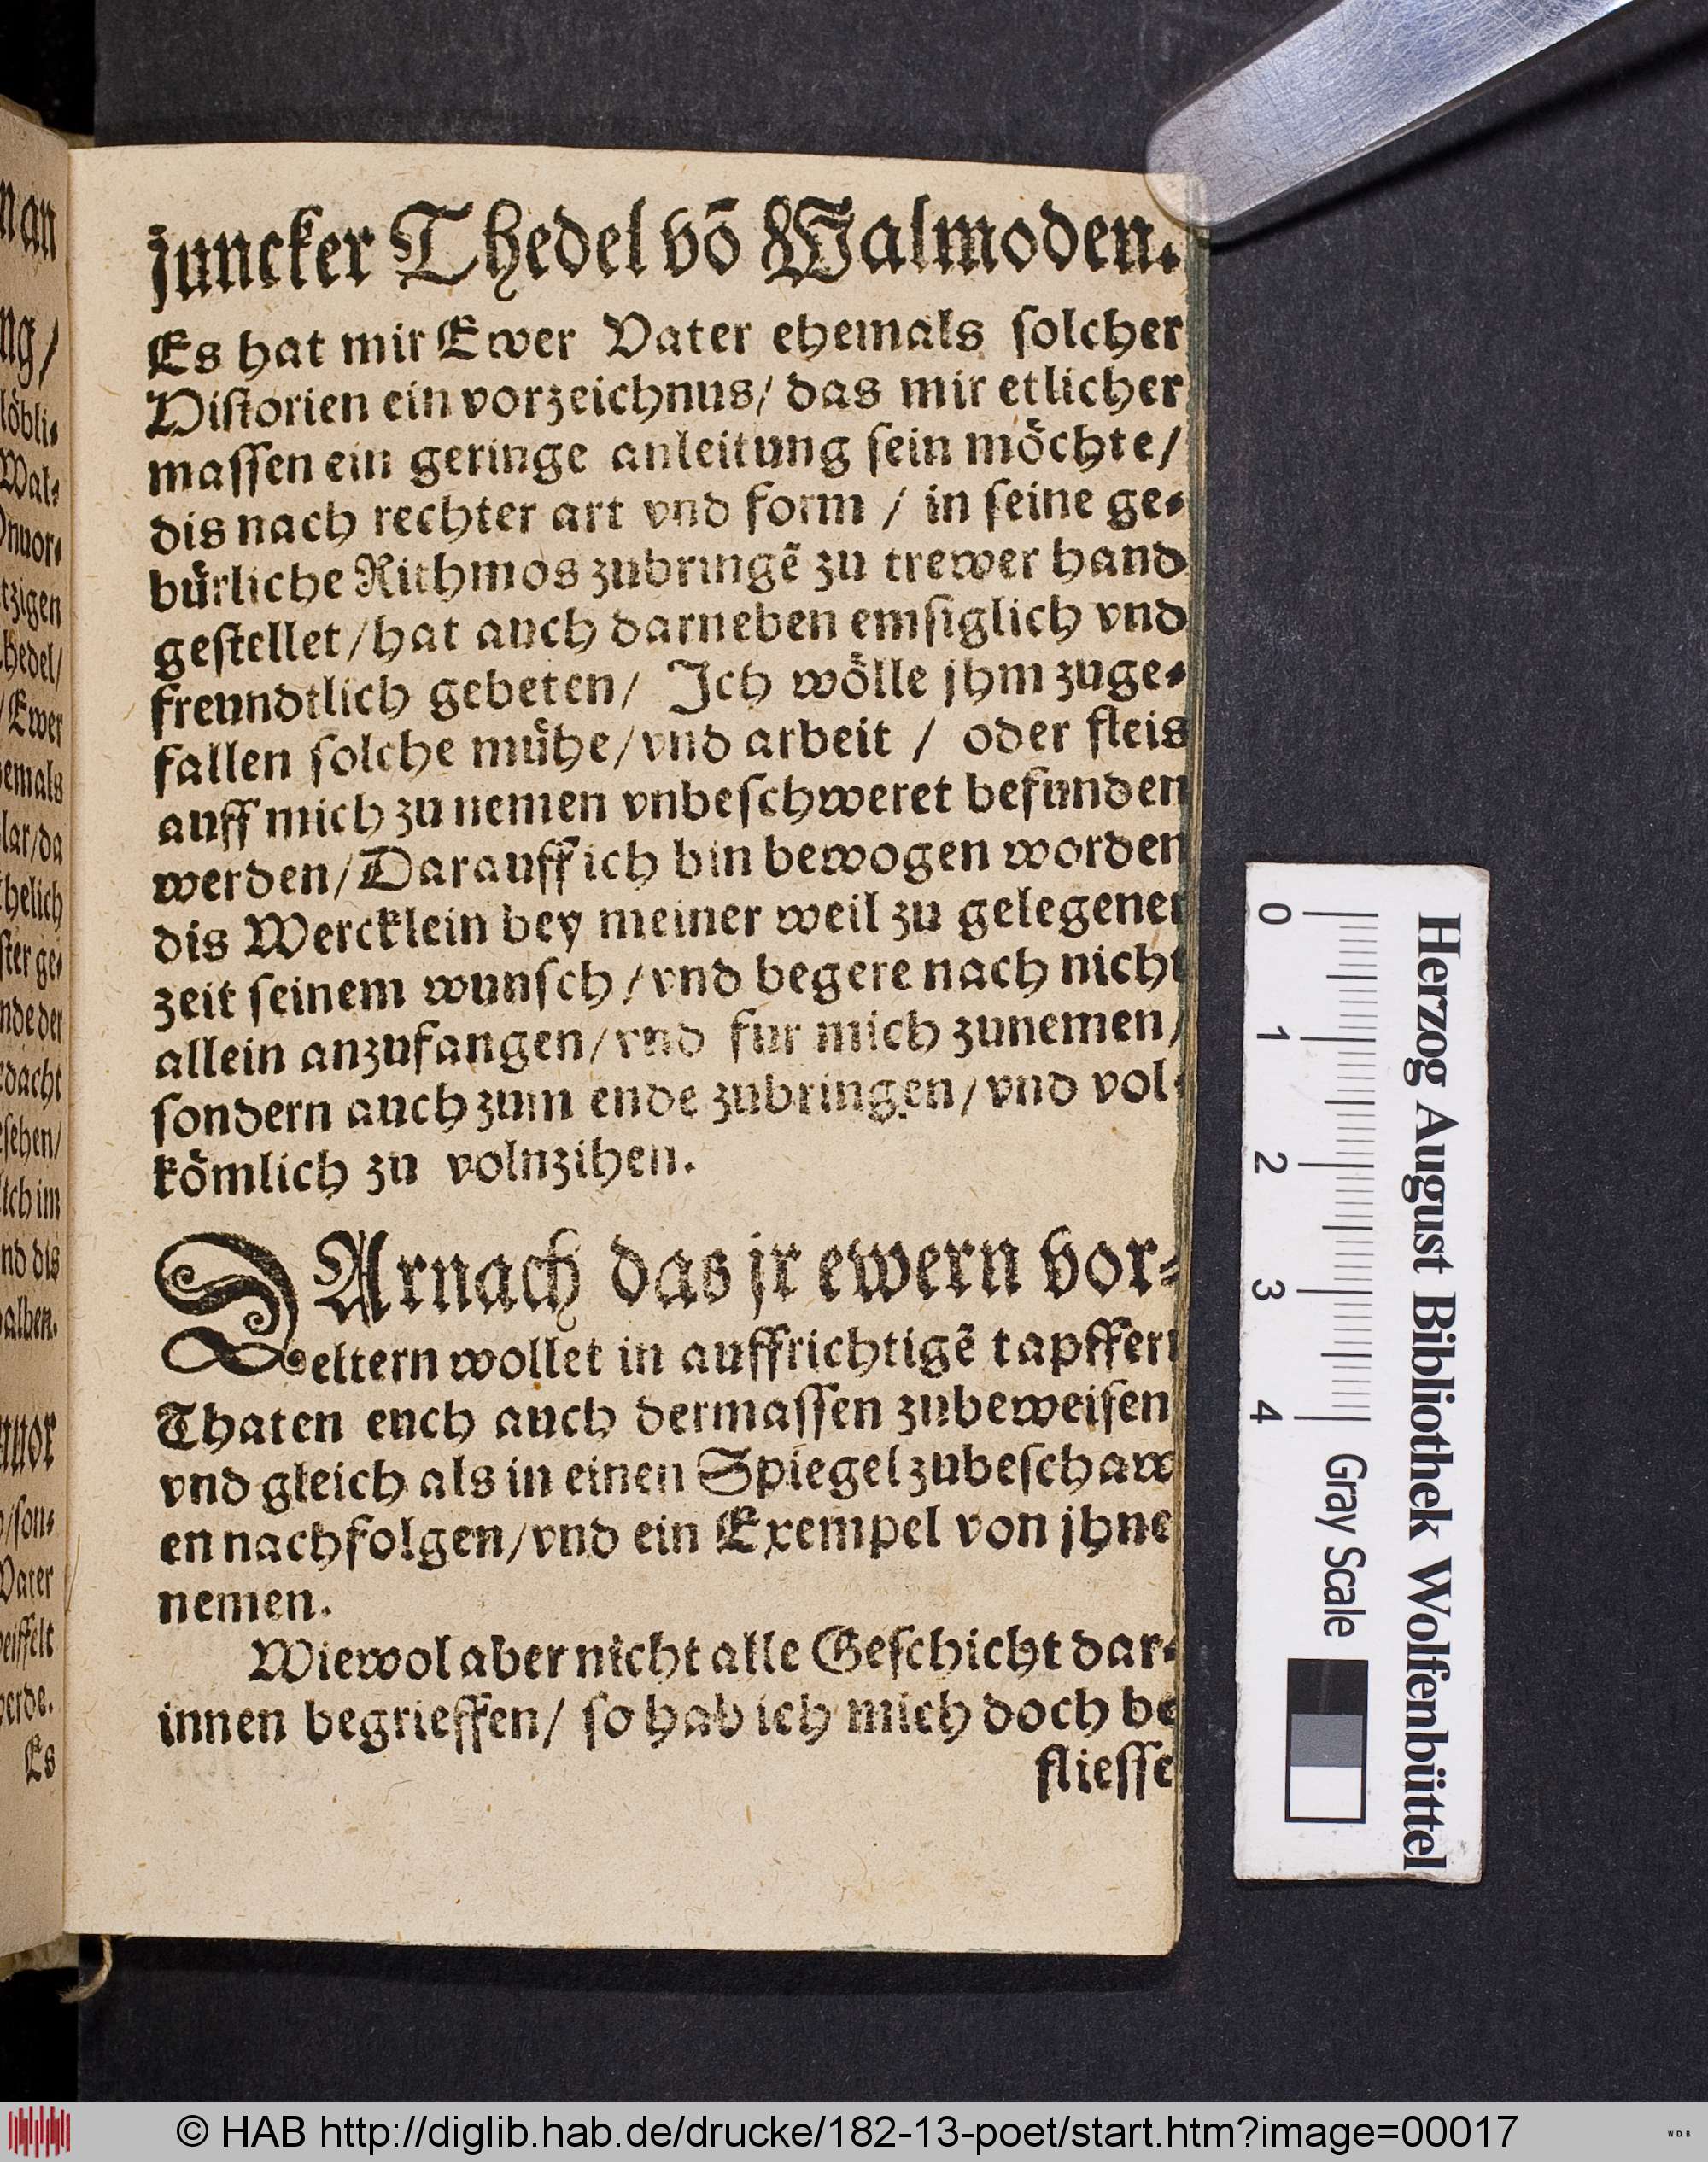 Juncker Thedel vō Walmoden.
Es hat mir Ewer Vater ehemals solcher
Historien ein vorzeichnus/ das mir etlicher
massen ein geringe anleitung sein möchte/
dis nach rechter art vnd form / in seine ge-
bürliche Rithmos zubringē zu trewer hand
gestellet/hat auch darneben emsiglich vnd
freundtlich gebeten/ Ich wölle jhm zuge-
fallen solche mühe/vnd arbeit / oder fleis
auff mich zu nemen vnbeschweret befunden
werden/Darauff ich bin bewogen worden
dis Wercklein bey meiner weil zu gelegener
zeit seinem wunsch/vnd begere nach nicht
allein anzufangen/vnd fur mich zunemen/
sondern auch zum ende zubringen/vnd vol-
kömlich zu volnzihen.
DArnach das jr ewern vor-
eltern wollet in auffrichtigē tapffern
Thaten euch auch dermassen zubeweisen
vnd gleich als in einen Spiegel zubeschaw
en nachfolgen/vnd ein Exempel von jhne
nemen.
Wiewol aber nicht alle Geschicht dar-
innen begrieffen/ so hab ich mich doch be
fliesse
0 1 2 3 4 Gray Scale
Herzog August Bibliothek Wolfenbüttel
© HAB http://diglib.hab.de/drucke/182-13-poet/start.htm?image=00017
WDB